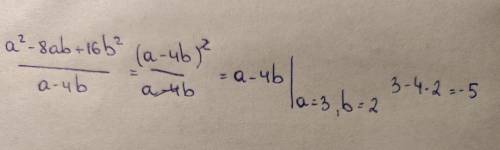 (a² - 8ab + 16b²)/(a - 4b) = (a - 4b)²/(a - 4b) = a - 4b | a = 3, b = 2 3 - 4 · 2 = -5